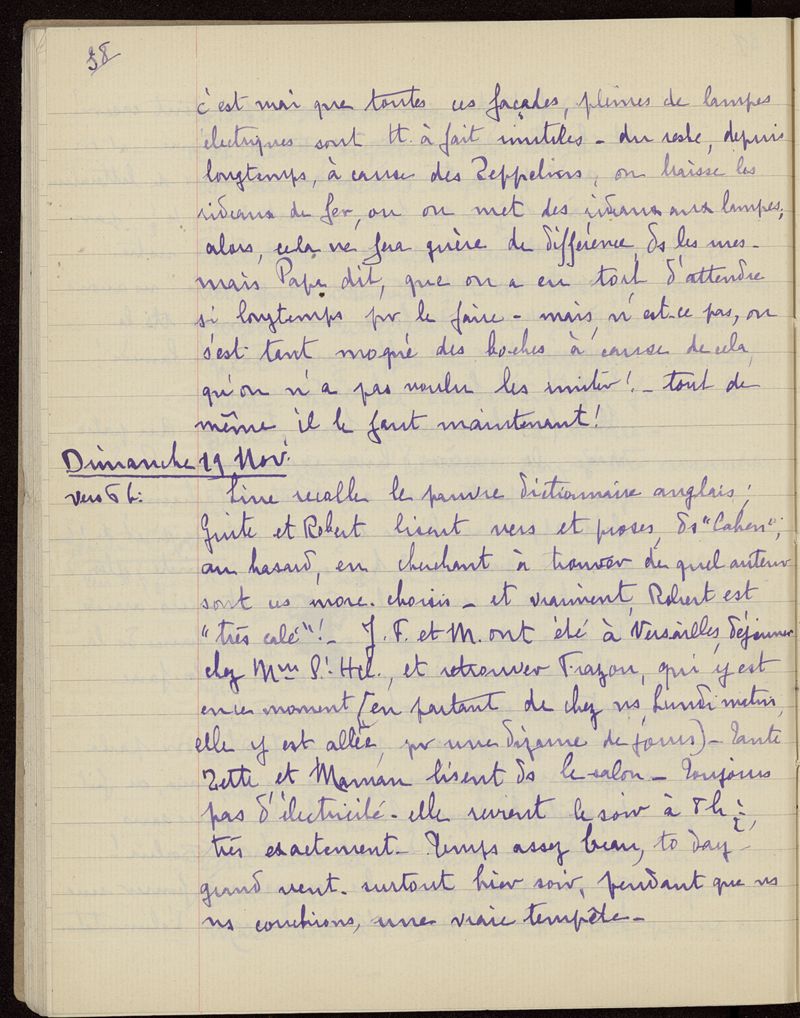 38
c'est vrai que toutes ces façades, pleines de lampes
électriques sont tt. à fait inutiles - du reste, depuis
longtemps, à cause des Zeppelins, on baisse les
rideaux de fer, ou on met des rideaux aux lampes,
alors, cela ne fera guère de différence, ds les rues -
mais Papa dit, que on a eu tort d'attendre
si longtemps pr le faire - mais, n'est-ce pas, on
s'est tant moqué des boches à cause de cela,
qu'on n'a pas voulu les imiter! - tout de
même, il le faut maintenant!
Dimanche 19 Nov.
vers 6 h: Line recolle le pauvre dictionnaire anglais;
Guite et Robert lisent vers et proses, ds "Cahen",
au hasard, en cherchant à trouver de quel auteur
sont ces morc. choisis - et vraiment, Robert est
"très calé"! - J. F. et M. ont été à Versailles, déjeuner
chez Mme St Hil., et retrouver Frazou, qui y est
en ce moment (en partant de chez ns, Lundi matin,
elle y est allée, pr une dizaine de jours) - Tante
Zette, et Maman lisent ds le salon - Toujours
pas d'électricité - elle revient le soir à
très exactement - Temps assez beau, to day -
grand vent - surtout hier soir, pendant que ns
ns couchions, une vraie tempête -